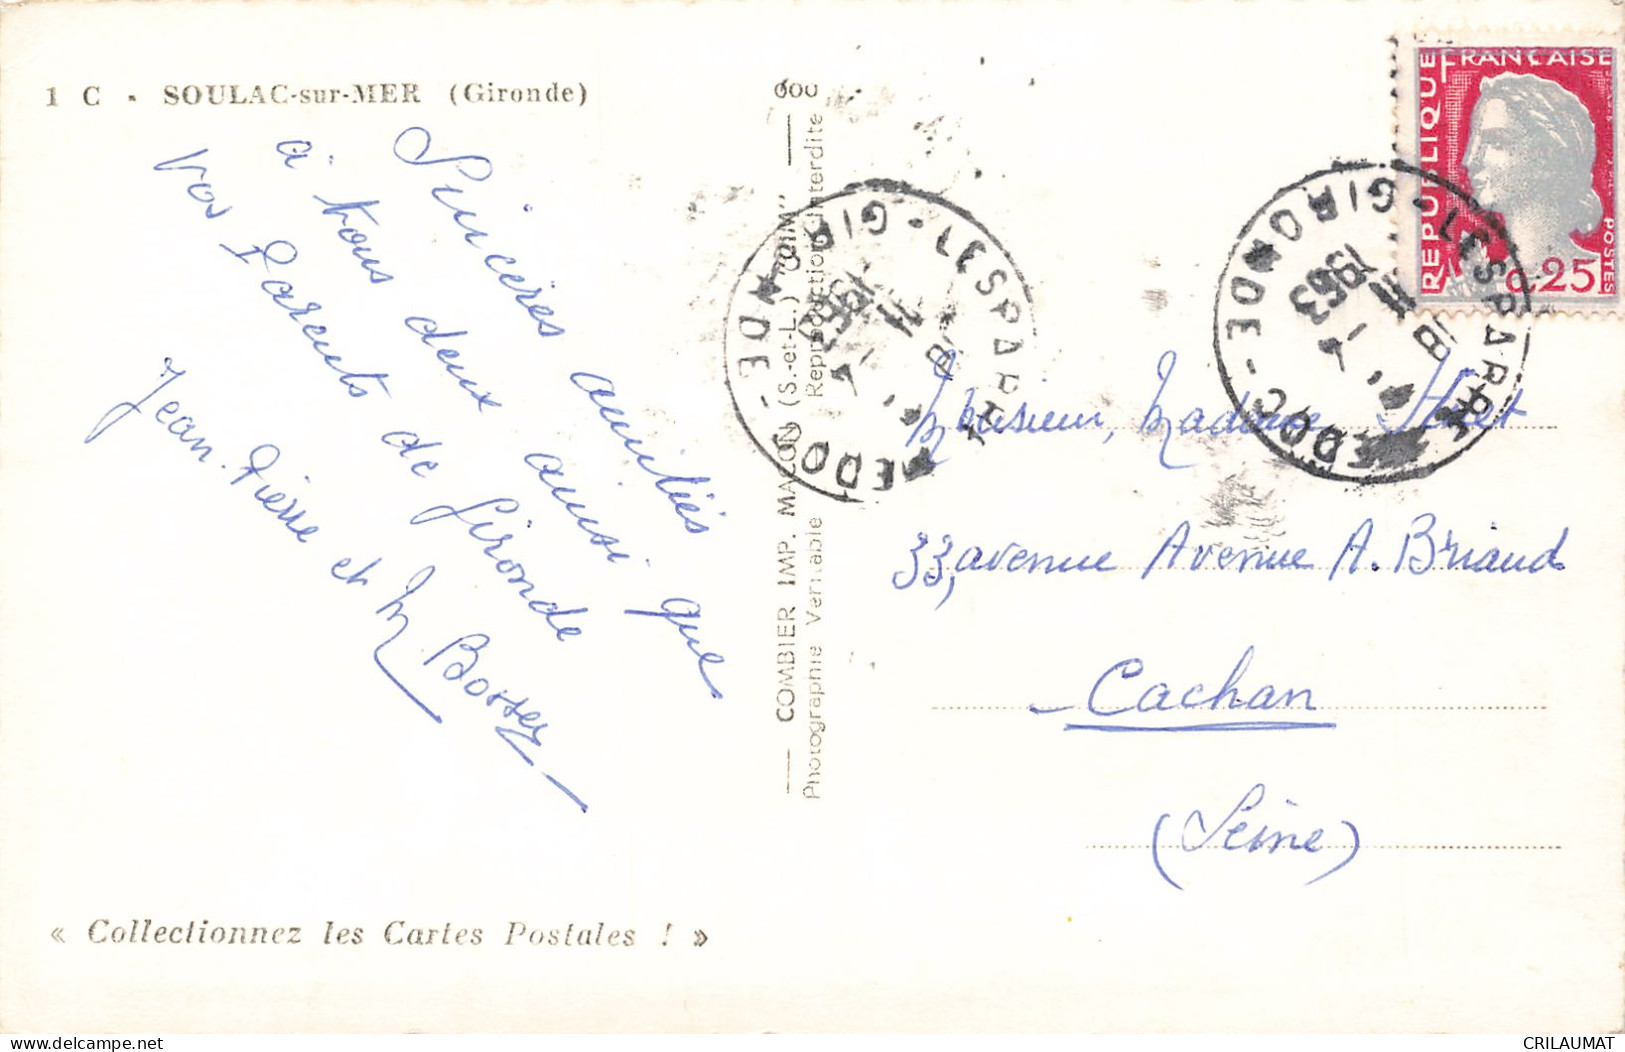 1 C - SOULAC-sur-MER (Gironde)
Sincères amitiés
à tous deux ainsi que
vos Parents de Gironde
Jean-Pierre et M Bossey
« Collectionnez les Cartes Postales ! »
COMBIER IMP. MACON (S.-et-L.) "CIM"
Photographie Véritable Reproduction Interdite
LESPARRE-MEDOC - GIRONDE
18 H
4 - 11
1963
LESPARRE-MEDOC - GIRONDE
18 H
4 - 11
1963
REPUBLIQUE FRANÇAISE
POSTES
0.25
Monsieur, Madame Huet
33, avenue Avenue A. Briand
- Cachan
(Seine)
www.delcampe.net
CRILAUMAT